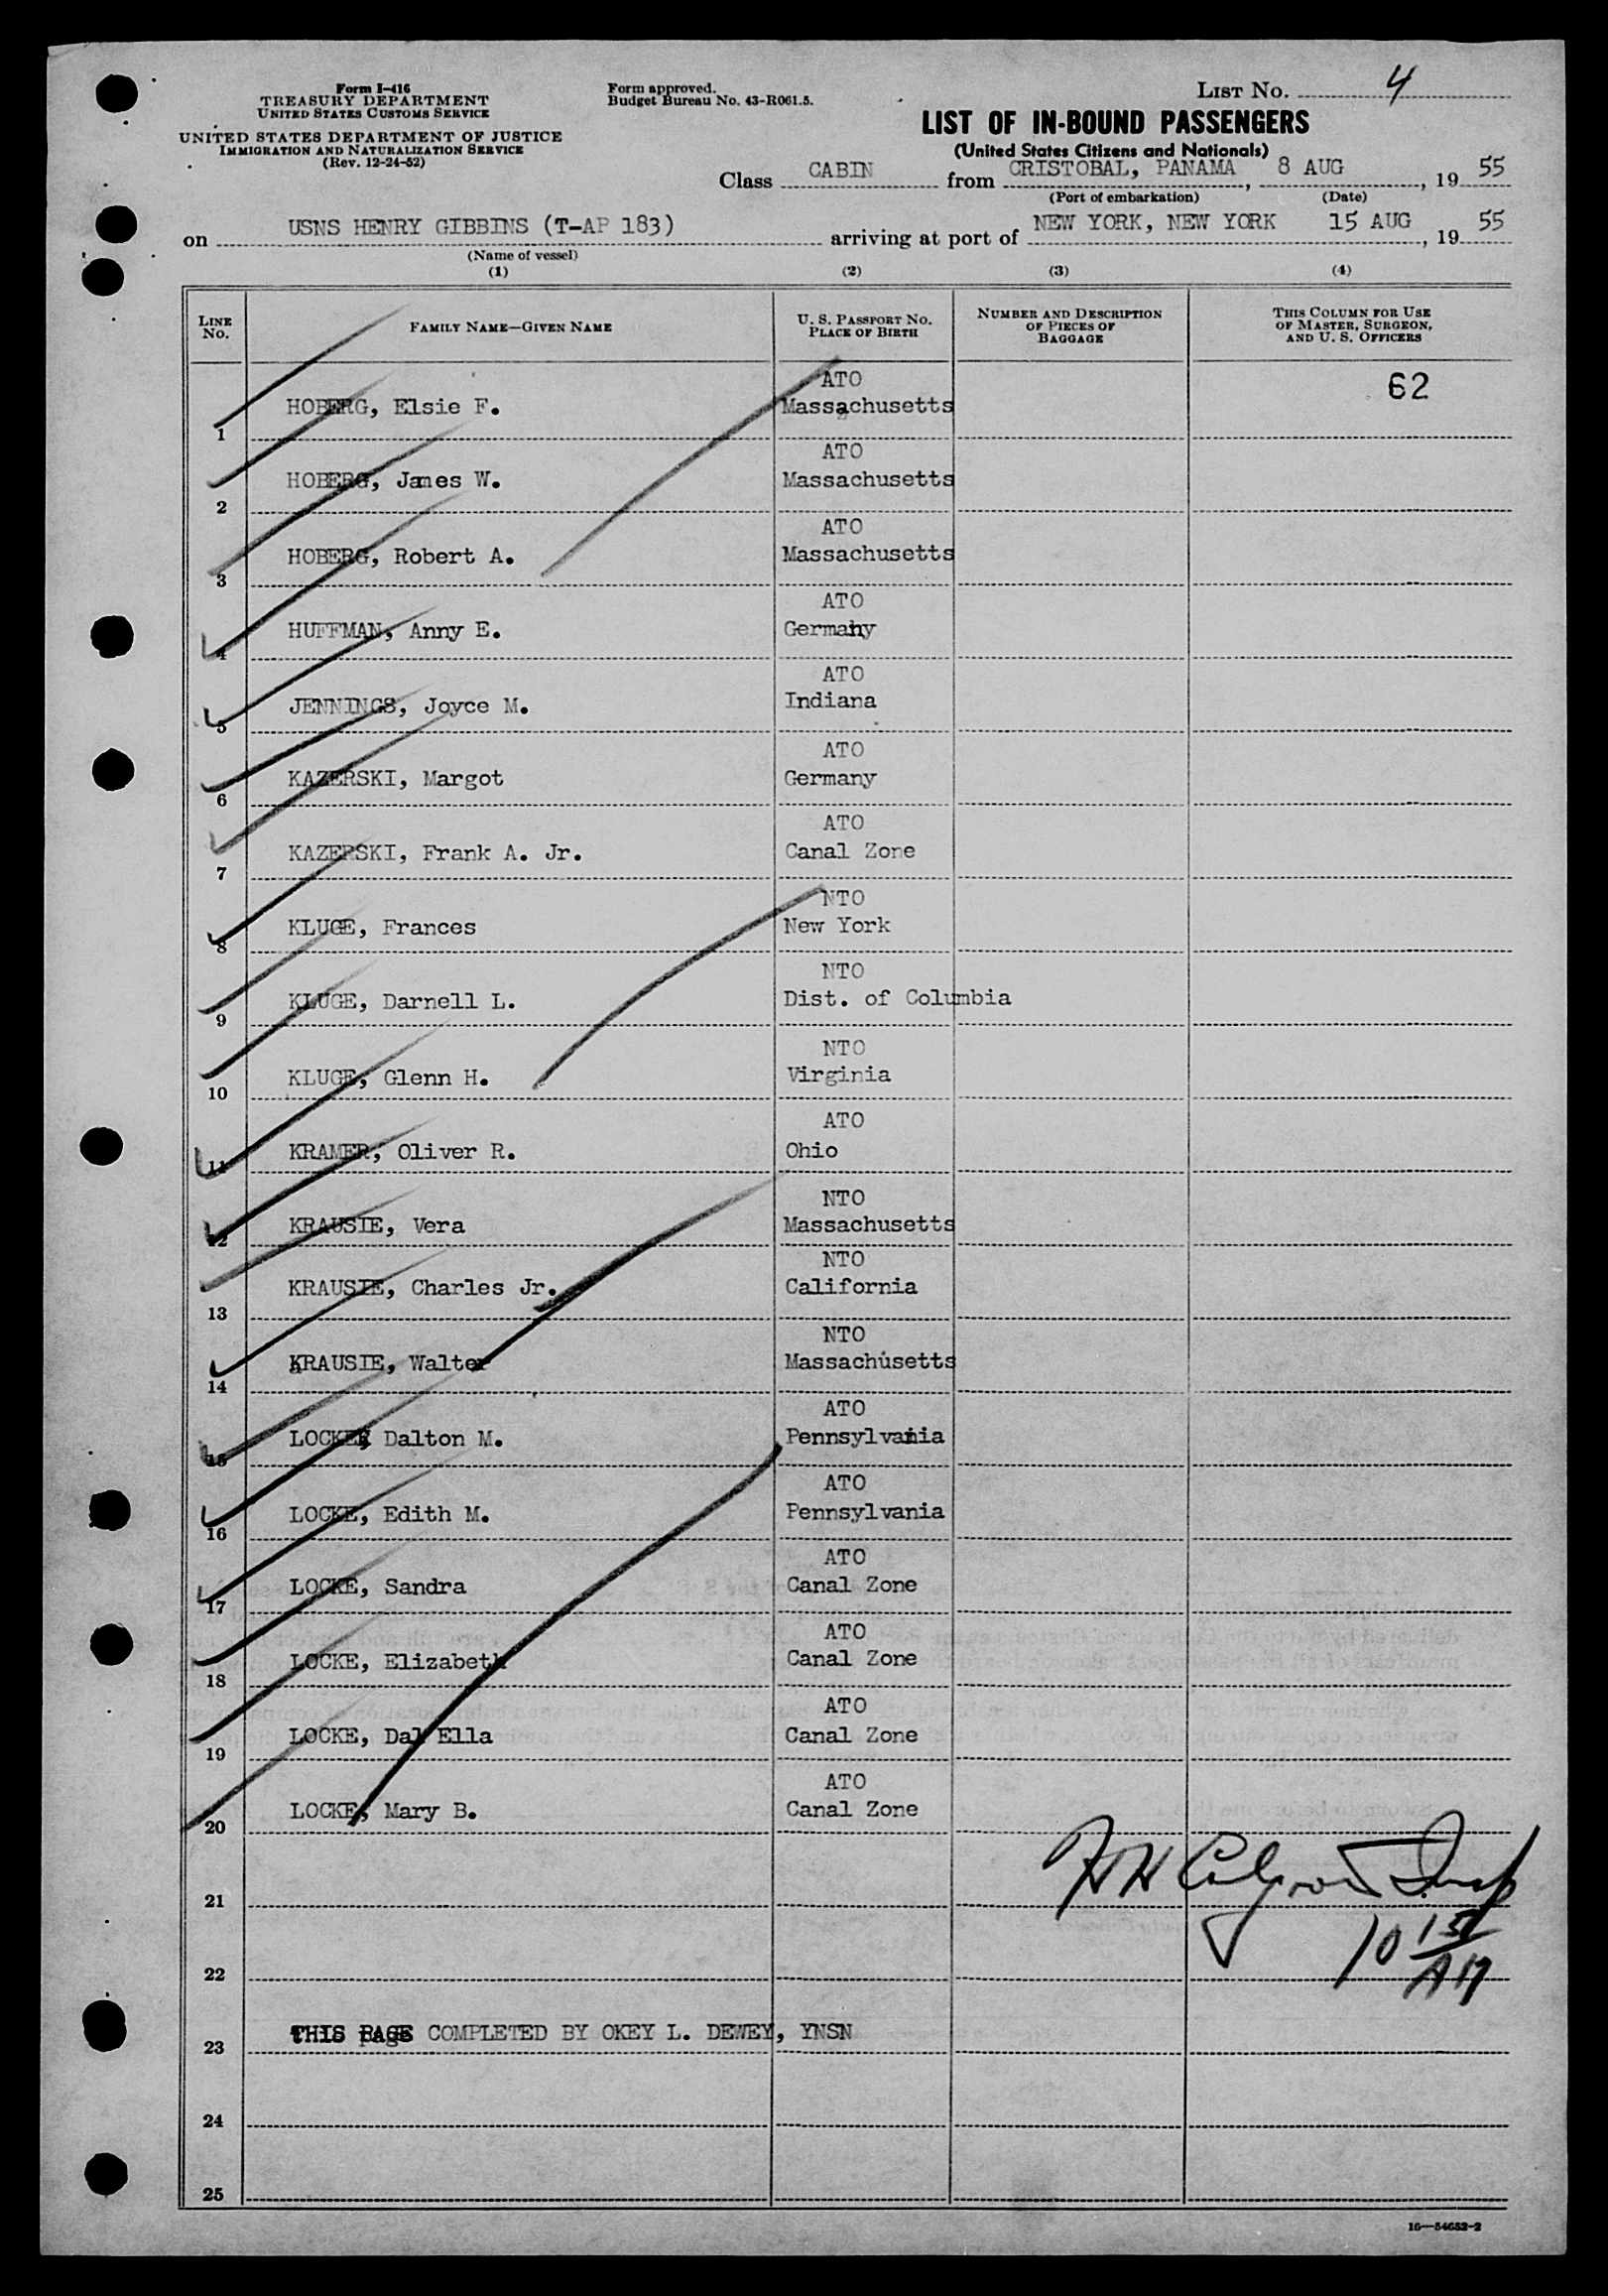 Form I-416
TREASURY DEPARTMENT
UNITED STATES CUSTOMS SERVICE
UNITED STATES DEPARTMENT OF JUSTICE
IMMIGRATION AND NATURALIZATION SERVICE
(Rev. 12-24-52)
Form approved.
Budget Bureau No. 43-R061.5.
LIST NO. 4
LIST OF IN-BOUND PASSENGERS
(United States Citizens and Nationals)
Class CABIN from CRISTOBAL, PANAMA, 8 AUG, 19 55
(Port of embarkation) (Date)
on USNS HENRY GIBBINS (T-AP 183) arriving at port of NEW YORK, NEW YORK 15 AUG, 19 55
(Name of vessel)
(1) (2) (3) (4)
LINE NO. FAMILY NAME—GIVEN NAME U. S. PASSPORT NO. PLACE OF BIRTH NUMBER AND DESCRIPTION OF PIECES OF BAGGAGE THIS COLUMN FOR USE OF MASTER, SURGEON, AND U. S. OFFICERS
ATO 62
1 HOBERG, Elsie F. Massachusetts
ATO
2 HOBERG, James W. Massachusetts
ATO
3 HOBERG, Robert A. Massachusetts
ATO
4 HUFFMAN, Anny E. Germany
ATO
5 JENNINGS, Joyce M. Indiana
ATO
6 KAZERSKI, Margot Germany
ATO
7 KAZERSKI, Frank A. Jr. Canal Zone
NTO
8 KLUGE, Frances New York
NTO
9 KLUGE, Darnell L. Dist. of Columbia
NTO
10 KLUGE, Glenn H. Virginia
ATO
11 KRAMER, Oliver R. Ohio
NTO
12 KRAUSIE, Vera Massachusetts
NTO
13 KRAUSIE, Charles Jr. California
NTO
14 KRAUSIE, Walter Massachusetts
ATO
15 LOCKE, Dalton M. Pennsylvania
ATO
16 LOCKE, Edith M. Pennsylvania
ATO
17 LOCKE, Sandra Canal Zone
ATO
18 LOCKE, Elizabeth Canal Zone
ATO
19 LOCKE, Dal Ella Canal Zone
ATO
20 LOCKE, Mary B. Canal Zone
21
22
10 15
23 THIS PAGE COMPLETED BY OKEY L. DEWEY, YNSN
24
25
16—54652-2